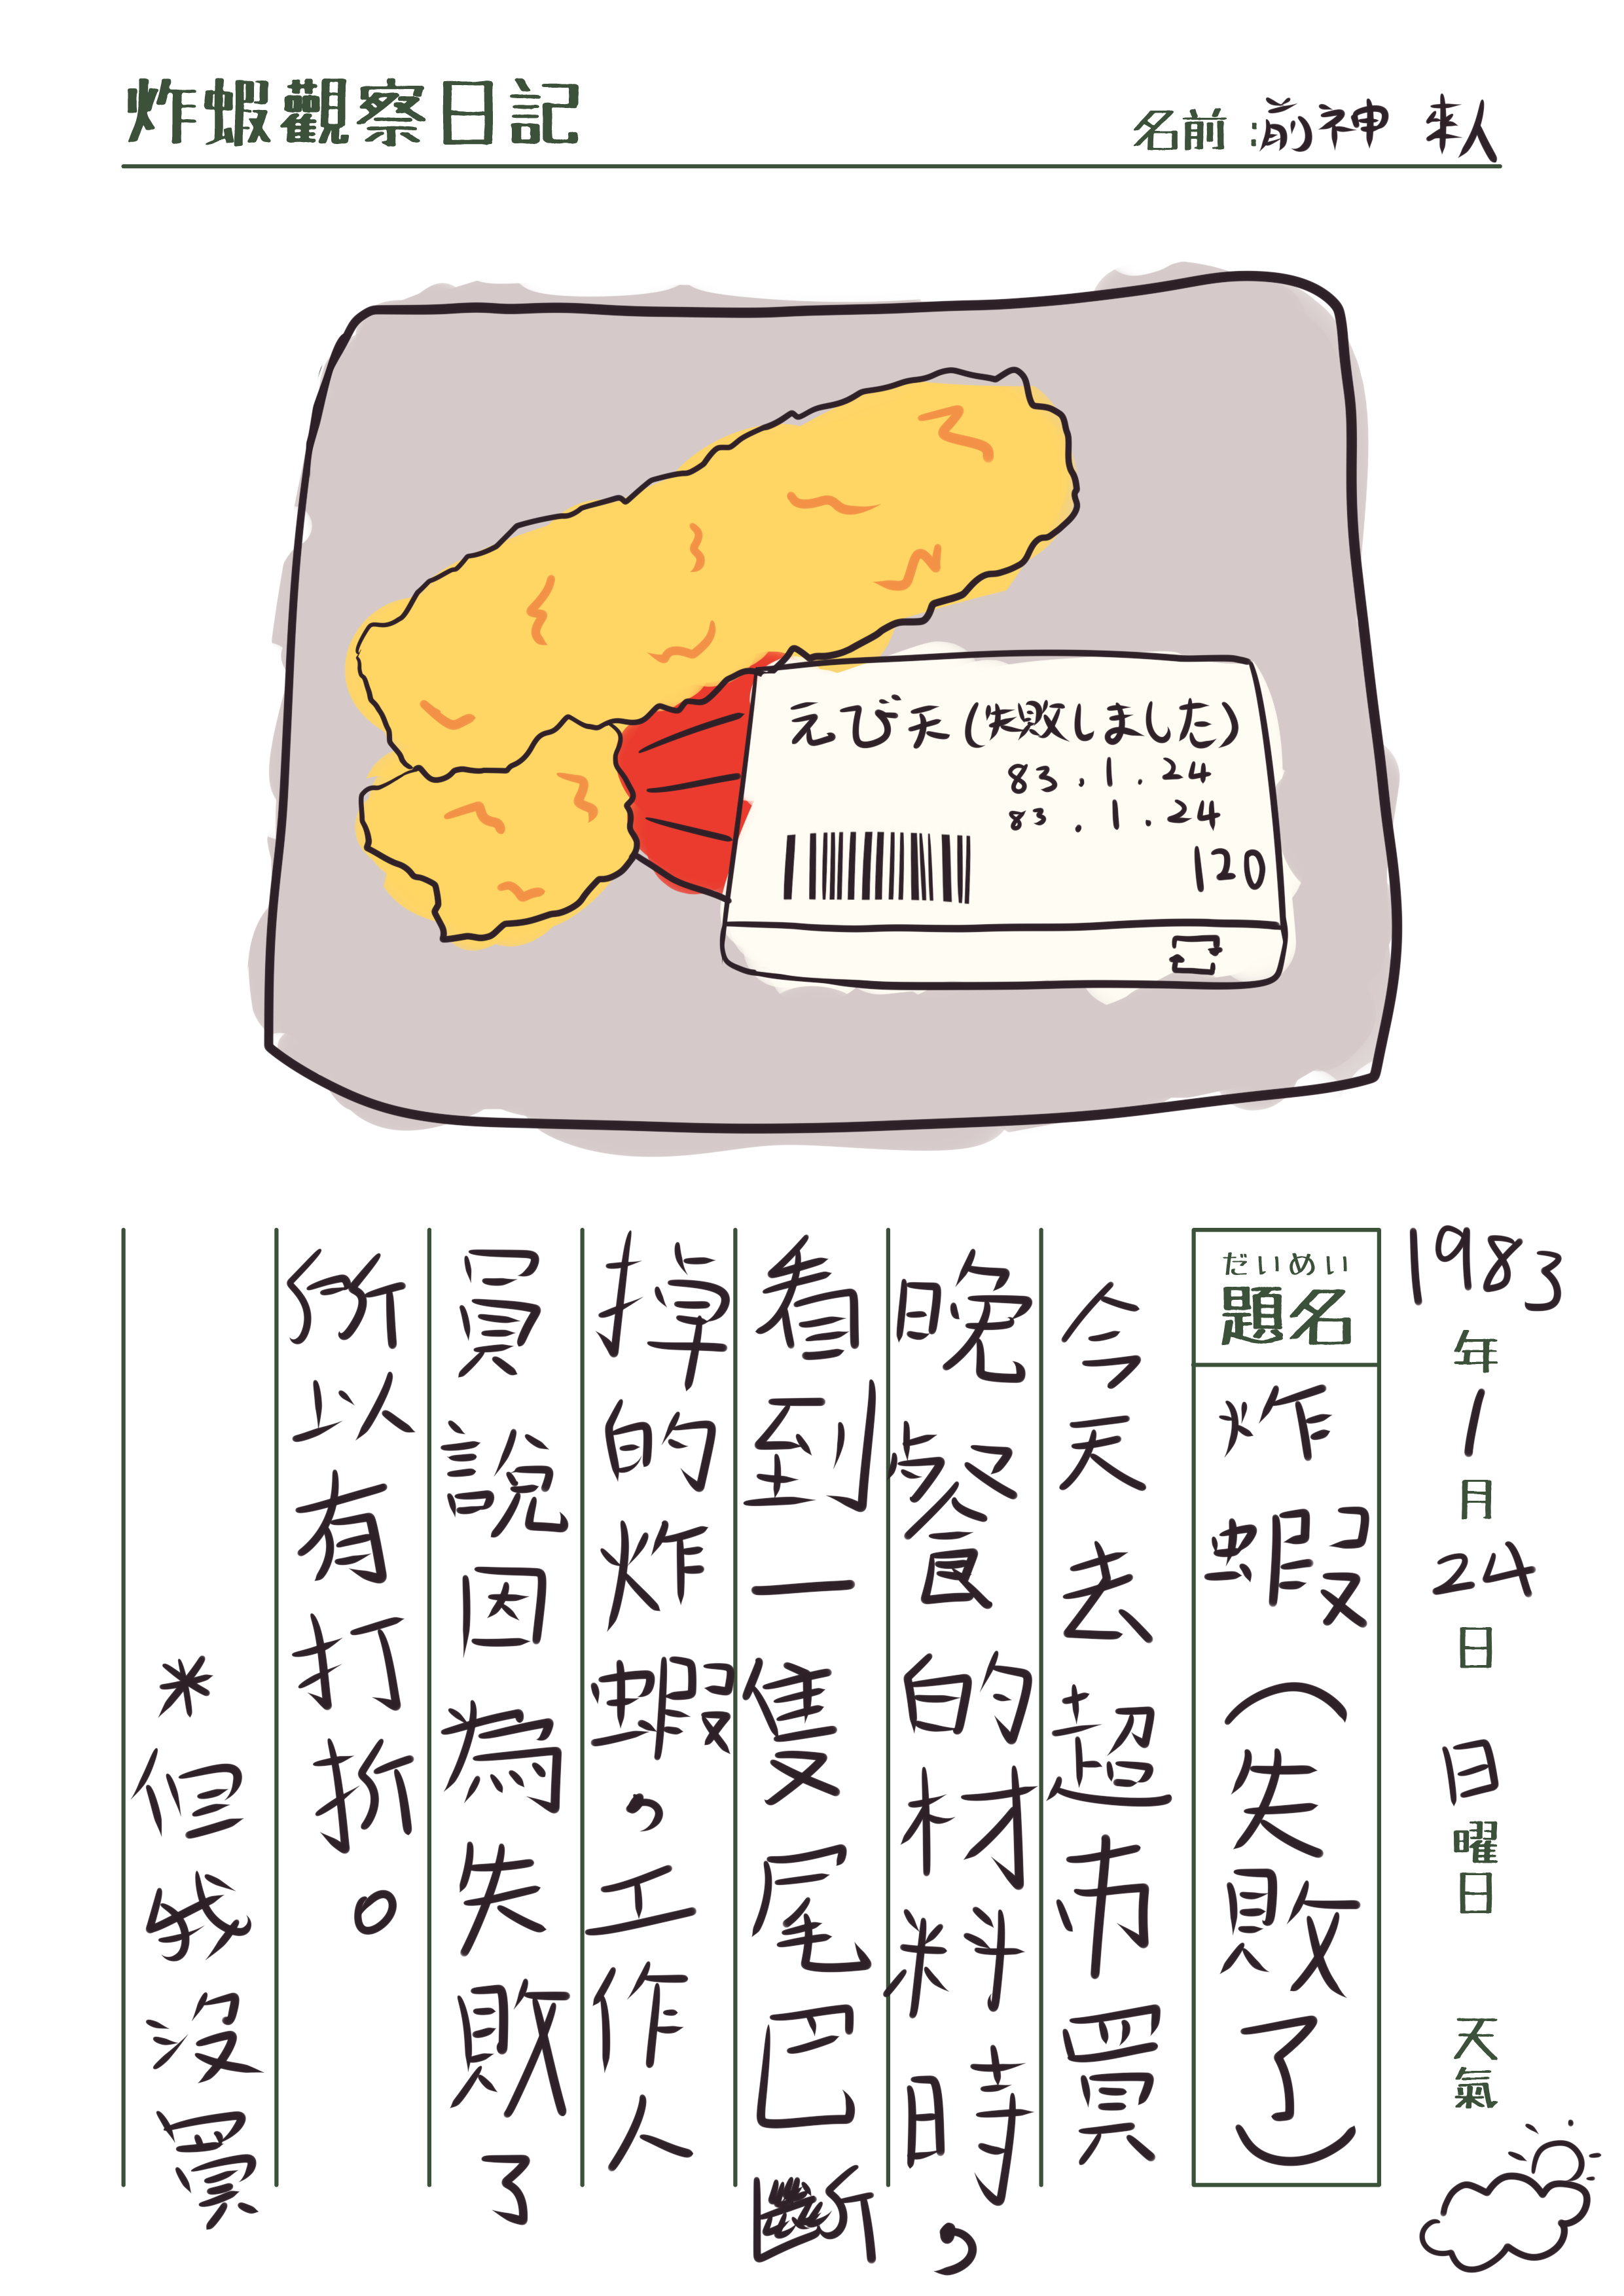 炸蝦觀察日記
名前:前神 來人
えび天(失敗しました)
83.1.24
83.1.24
120
1983年1月24日 日曜日 天氣
だいめい
題名
炸蝦(失敗了)
今天去超市買
晚餐的材料時,
看到一隻尾巴斷
掉的炸蝦,工作人
員說因為失敗了
所以有打折。
*但我沒買